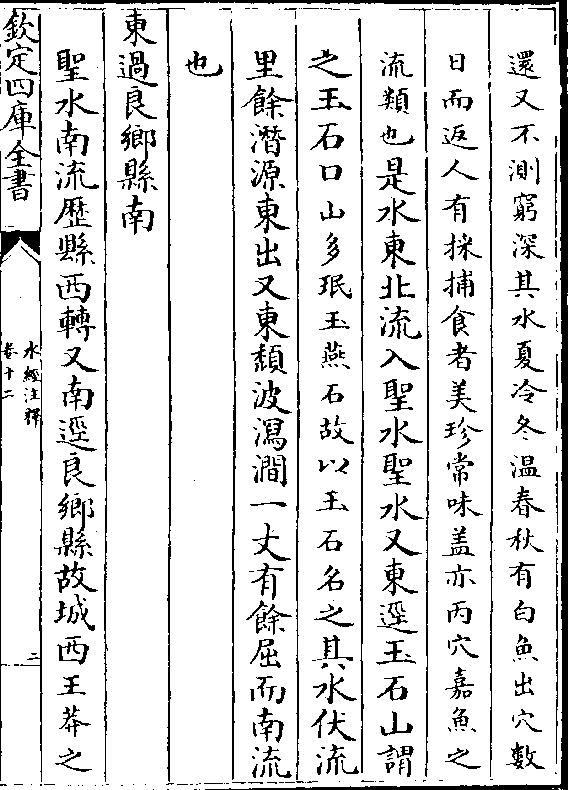 還又不測窮深其水夏冷冬温春秋有白魚出穴數
日而返人有採捕食者美珍常味盖亦丙穴嘉魚之
流類也是水東北流入聖水聖水又東逕玉石山謂
之玉石口山多珉玉燕石故以玉石名之其水伏流
里餘潛源東出又東頽波瀉澗一丈有餘屈而南流
也
東過良鄉縣南
聖水南流歴縣西轉又南逕良鄉縣故城西王莽之
欽定四庫全書
水經注釋
卷十二
二